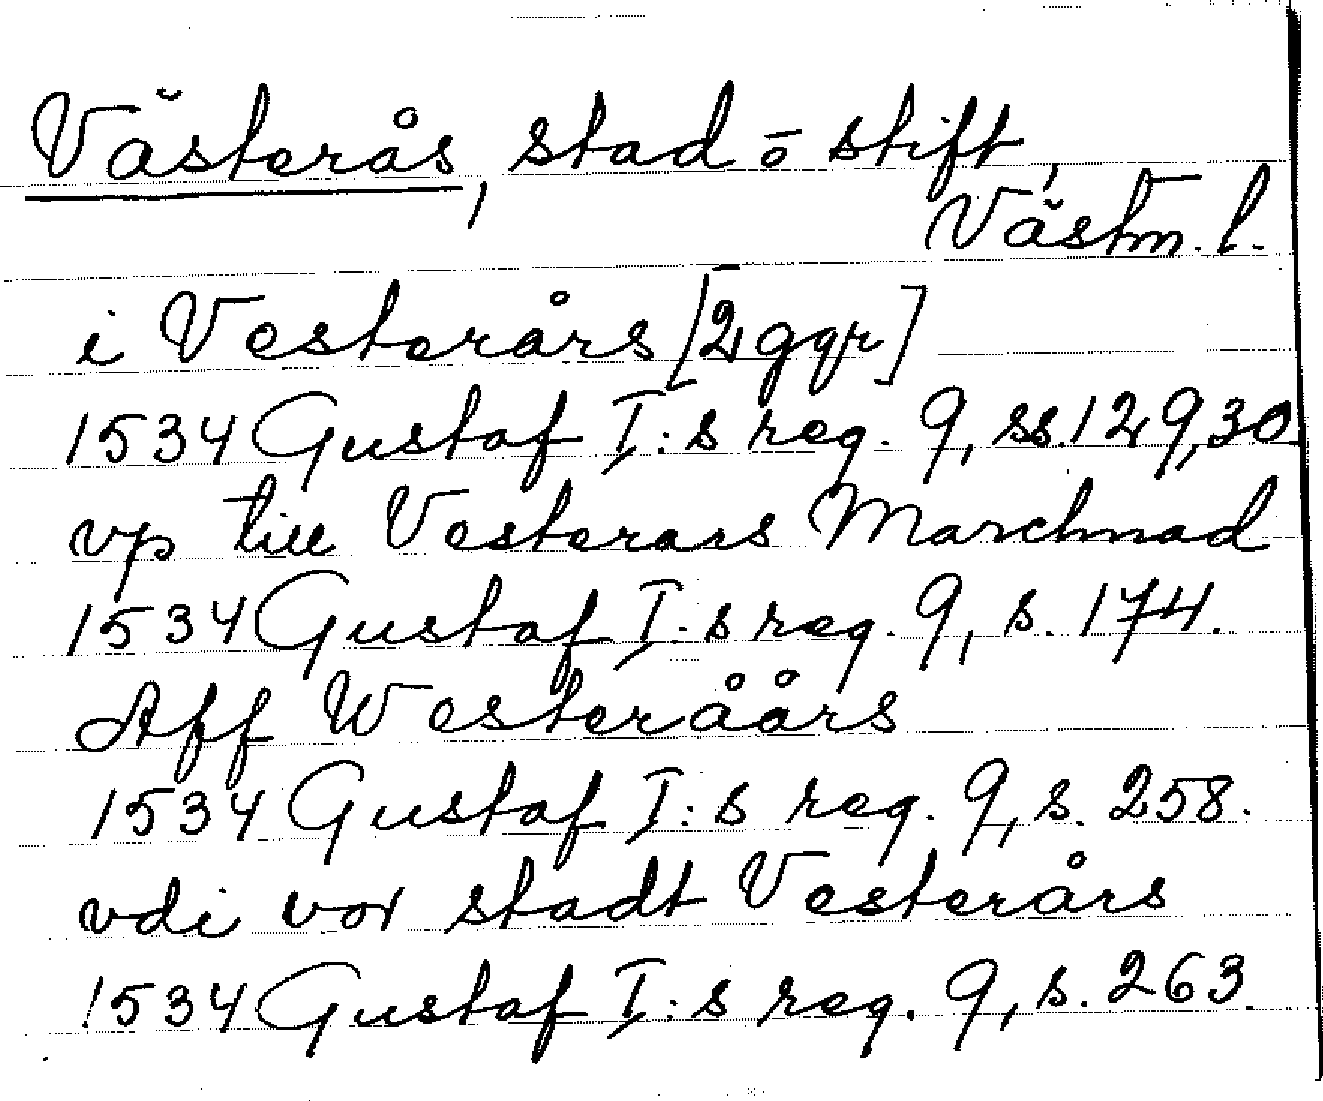 Västerås, stad o stift,
Västm. l.
i Vesterårs [2 ggr]
1534 Gustaf I:s reg. 9, ss. 129, 30
vp till Vesterars Marchnad
1534 Gustaf I:s reg. 9, s. 174.
Aff Westeråårs
1534 Gustaf I:s reg. 9, s. 258.
vdi vor stadt Vesterårs
1534 Gustaf I:s reg. 9, s. 263.